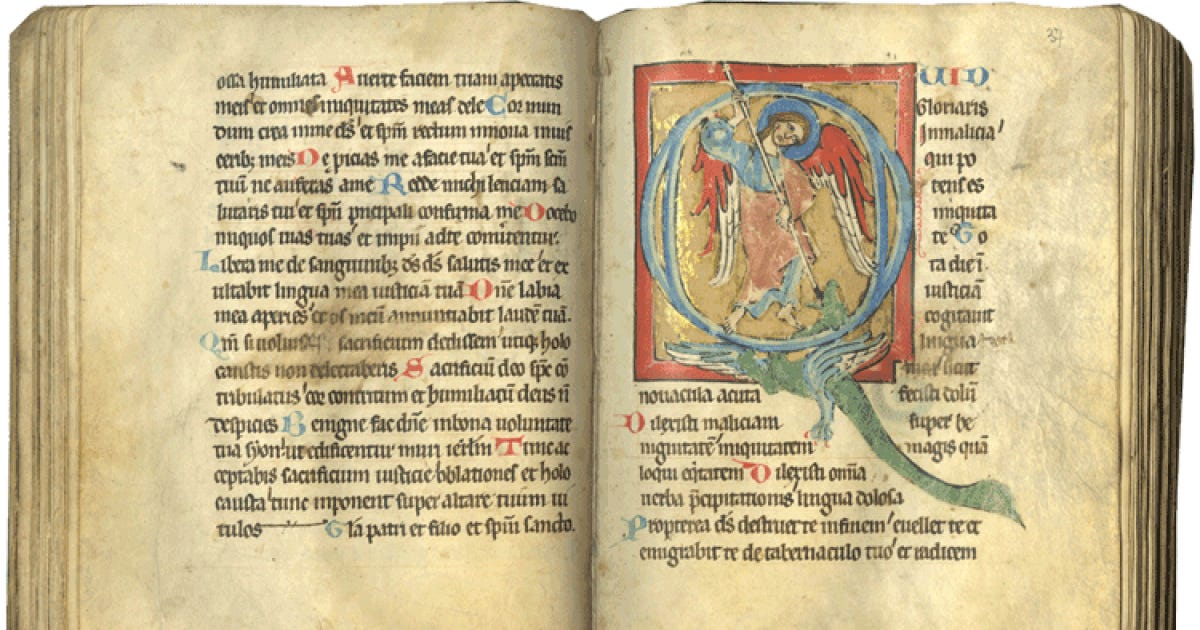 ossa humiliata Auerte faciem tuam apeccatis
meis et omnes iniquitates meas dele Cor mun
dum crea inme ds et spm rectum innoua inuis
ceribz meis Ne picias me afacie tua et spm scm
tuū ne auferas ame Redde michi leticiam sa
lutaris tui et spū pncipali confirma me Docebo
iniquos uias tuas et impii adte conuertentur
Libera me de sanguinibz ds ds salutis mee et ex
ultabit lingua mea iusticiā tuā Dne labia
mea aperies et os meū annuntiabit laudē tuā
Qm si uoluisses sacrificium dedissem utiqz holo
caustis non delectaberis Sacrificiū deo spc cō
tribulatus cor contritum et humiliatū deus n̄
despicies Benigne fac dn̄e inbona uoluntate
tua syon ut edificentur muri ierlm Tunc ac
ceptabis sacrificium iusticie oblationes et holo
causta tunc inponent super altare tuum ui
tulos Gla patri et filio et spui sancto
37
QUID
Gloriaris
Inmalicia
qui po
tens es
iniquita
te To
ta die ī
iusticiā
cogitauit
lingua tua
sicut
nouacula acuta fecisti dolū
Dilexisti maliciam super be
nignitatē iniquitatem magis quā
loqui eqtatem Dilexisti omā
uerba pcipitationis lingua dolosa
Propterea ds destruet te infinem euellet te et
emigrabit te de tabernaculo tuo et radicem